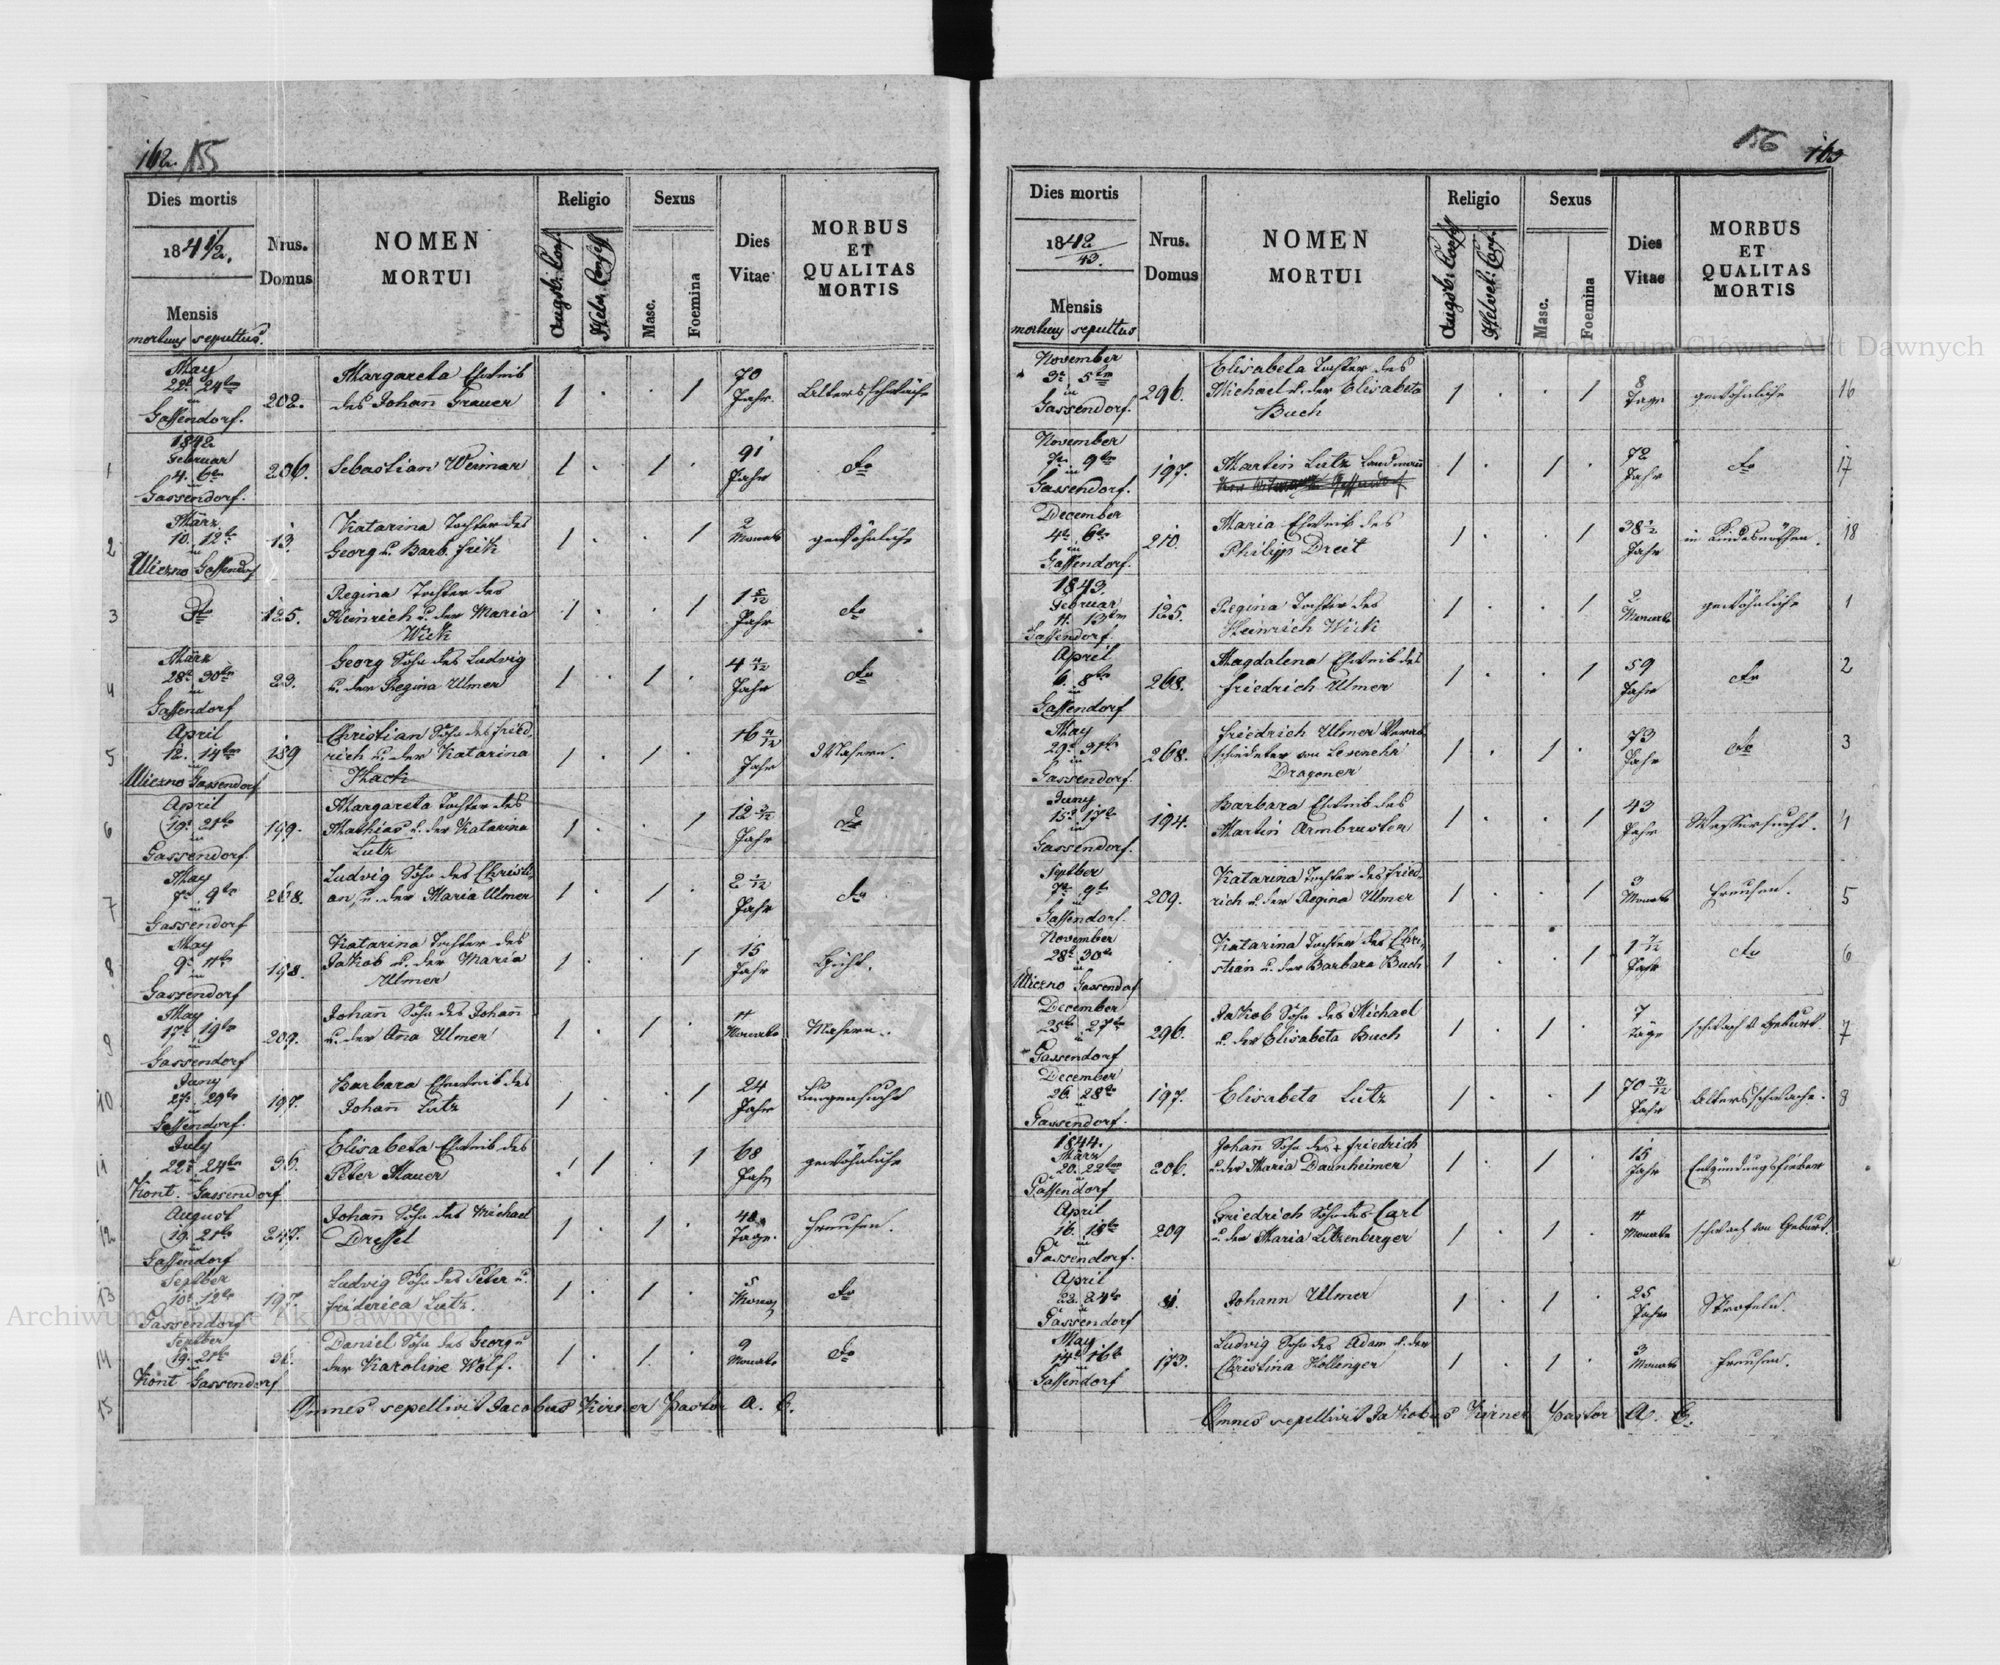 162. 155
Dies mortis
1841/2.
Mensis
mortuus sepultus.
Nrus. Domus
NOMEN MORTUI
Religio
Augsb: Conf.
Helv. Confess
Sexus
Masc.
Foemina
Dies Vitae
MORBUS
ET
QUALITAS
MORTIS
May
22t. 24ten
in
Gassendorf.
202.
Margareta Eheweib
des Johañ Grauer
1 . . 1
70
Jahr.
Altersschwäche
1842
Februar
4. 6ten
in
Gassendorf.
206.
Sebastian Weimar
1 . 1 .
91
Jahr
do
1
März
10. 12te
in
Uliczno Gassendorf
13.
Katarina Tochter des
Georg u. Barb. Fritz
1 . . 1
2
Monate
gewöhnliche
2
do
125.
Regina Tochter des
Heinrich u. der Maria
Wick
1 . . 1
1 5/12
Jahr
do
3
März
28t 30ten
in
Gassendorf
23.
Georg Sohn des Ludvig
u. der Regina Ulmer
1 . 1 .
4
Jahr
do
4
April
12. 14ten
Uliczno Gassendorf
189
Christian Sohn des Fried
rich u. der Katarina
1 . 1 .
16
Jahr
Masern.
5
April
19t. 21te
in
Gassendorf.
199.
Margareta Tochter des
Mathias u. der Katarina
Lutz
1 . . 1
12
Jahr
do
6
May
7t. 9te
in
Gassendorf
268.
Ludvig Sohn des Christi-
an, u. der Maria Ulmer
1 . 1 .
2 1/12
Jahr
do
7
May
9t. 11te
in
Gassendorf
198.
Katarina Tochter des
Jakob u. der Maria
Ulmer
1 . . 1
15
Jahr
Gicht.
8
May
17t. 19te
in
Gassendorf
209.
Johañ Sohn des Johañ
u. der Ana Ulmer
1 . 1 .
11
Monate
Masern.
9
Juny
27t. 29te
in
Gassendorf.
197.
Barbara Eheweib des
Johañ Lutz
1 . . 1
24
Jahr
Lungensucht
10
July
22t. 24ten
in
Kont. Gassendorf
36.
Elisabeta Eheweib des
Peter Mauer
1 . 1
68
Jahr
gewöhnliche
11
August
19. 21te
in
Gassendorf
247.
Johañ Sohn des Michael
Dressel
1 . 1 .
Tage.
Freusen.
12
Septber
10t. 12te
in
Gassendorf
197.
Ludvig Sohn des Peter u.
Friderica Lutz.
1 . 1 .
5
Monate
do
13
Septber
19t. 21te
in
Kont Gassendorf
36.
Daniel Sohn des Georg u
der Karoline Wolf.
1 . 1 .
9
Monate
do
14
15
Omnes sepellivit Jacobus Kirner Pastor A. C.
156 163
Dies mortis
1842/43.
Mensis
mortuus sepultus
Nrus. Domus
NOMEN MORTUI
Religio
Augsb: Confess
Helvet: Conf.
Sexus
Masc.
Foemina
Dies Vitae
MORBUS
ET
QUALITAS
MORTIS
November
3t. 5ten
in
Gassendorf.
296.
Elisabeta Tochter des
Michael u. der Elisabeta
Buch
1 . . 1
8
Tage
gewöhnliche
16
November
7t. 9ten
in
Gassendorf.
197.
Martin Lutz Landmañ
1 . 1 .
72
Jahr
do
17
December
4t. 6te
in
Gassendorf.
210.
Maria Eheweib des
Philipp Dreit
1 . . 1
38 1/2
Jahr
in Kindesnöthen.
18
1843.
Februar
11. 13ten
Gassendorf.
125.
Regina Tochter des
Heinrich Wick
1 . . 1
2
Monate
gewöhnliche
1
April
6. 8te
in
Gassendorf
268.
Magdalena Eheweib des
Friedrich Ulmer
1 . . 1
59
Jahr
do
2
May
29t. 31te
in
Gassendorf.
268.
Friedrich Ulmer Verab
schiedeter von
Dragoner
1 . 1 .
73
Jahr
do
3
Juny
15t. 17te
in
Gassendorf.
194.
Barbara Eheweib des
Martin Armbruster
1 . . 1
43
Jahr
Wassersucht.
4
Septber
7t. 9te
in
Gassendorf.
209.
Katarina Tochter des Fried-
rich u. der Regina Ulmer
1 . . 1
3
Monate
Freusen.
5
November
28t. 30te
in
Uliczno Gassendorf
Katarina Tochter des Chri-
stian u. der Barbara Buch
1 . . 1
1 7/12
Jahr
do
6
December
25te 27te
in
Gassendorf
296.
Jakob Sohn des Michael
u. der Elisabeta Buch
1 . 1 .
7
Tage
schwach v. Geburt.
7
December
26. 28te
in
Gassendorf.
197.
Elisabeta Lutz
1 . . 1
70
Jahr
Altersschwäche.
8
1844.
März
20. 22ten
in
Gassendorf
206.
Johañ Sohn des + Friedrich
u. der Maria Daunheimer
1 . 1 .
15
Jahr
Entzündungsfieber
April
16. 18te
in
Gassendorf.
209
Friedrich Sohn des Carl
u. der Maria Litzenberger
1 . 1 .
11
Monate
schwach von Geburt.
April
22. 24te
in
Gassendorf
Johann Ulmer
1 . 1 .
25
Jahr
Skrofeln.
May
14t. 16te
in
Gassendorf
173.
Ludvig Sohn des Adam u. der
Christina Hollenger
1 . 1 .
3
Monate
Freusen.
Omnes sepellivit Jakobus Kirner Pastor A. C.
Archiwum Główne Akt Dawnych
Archiwum Główne Akt Dawnych